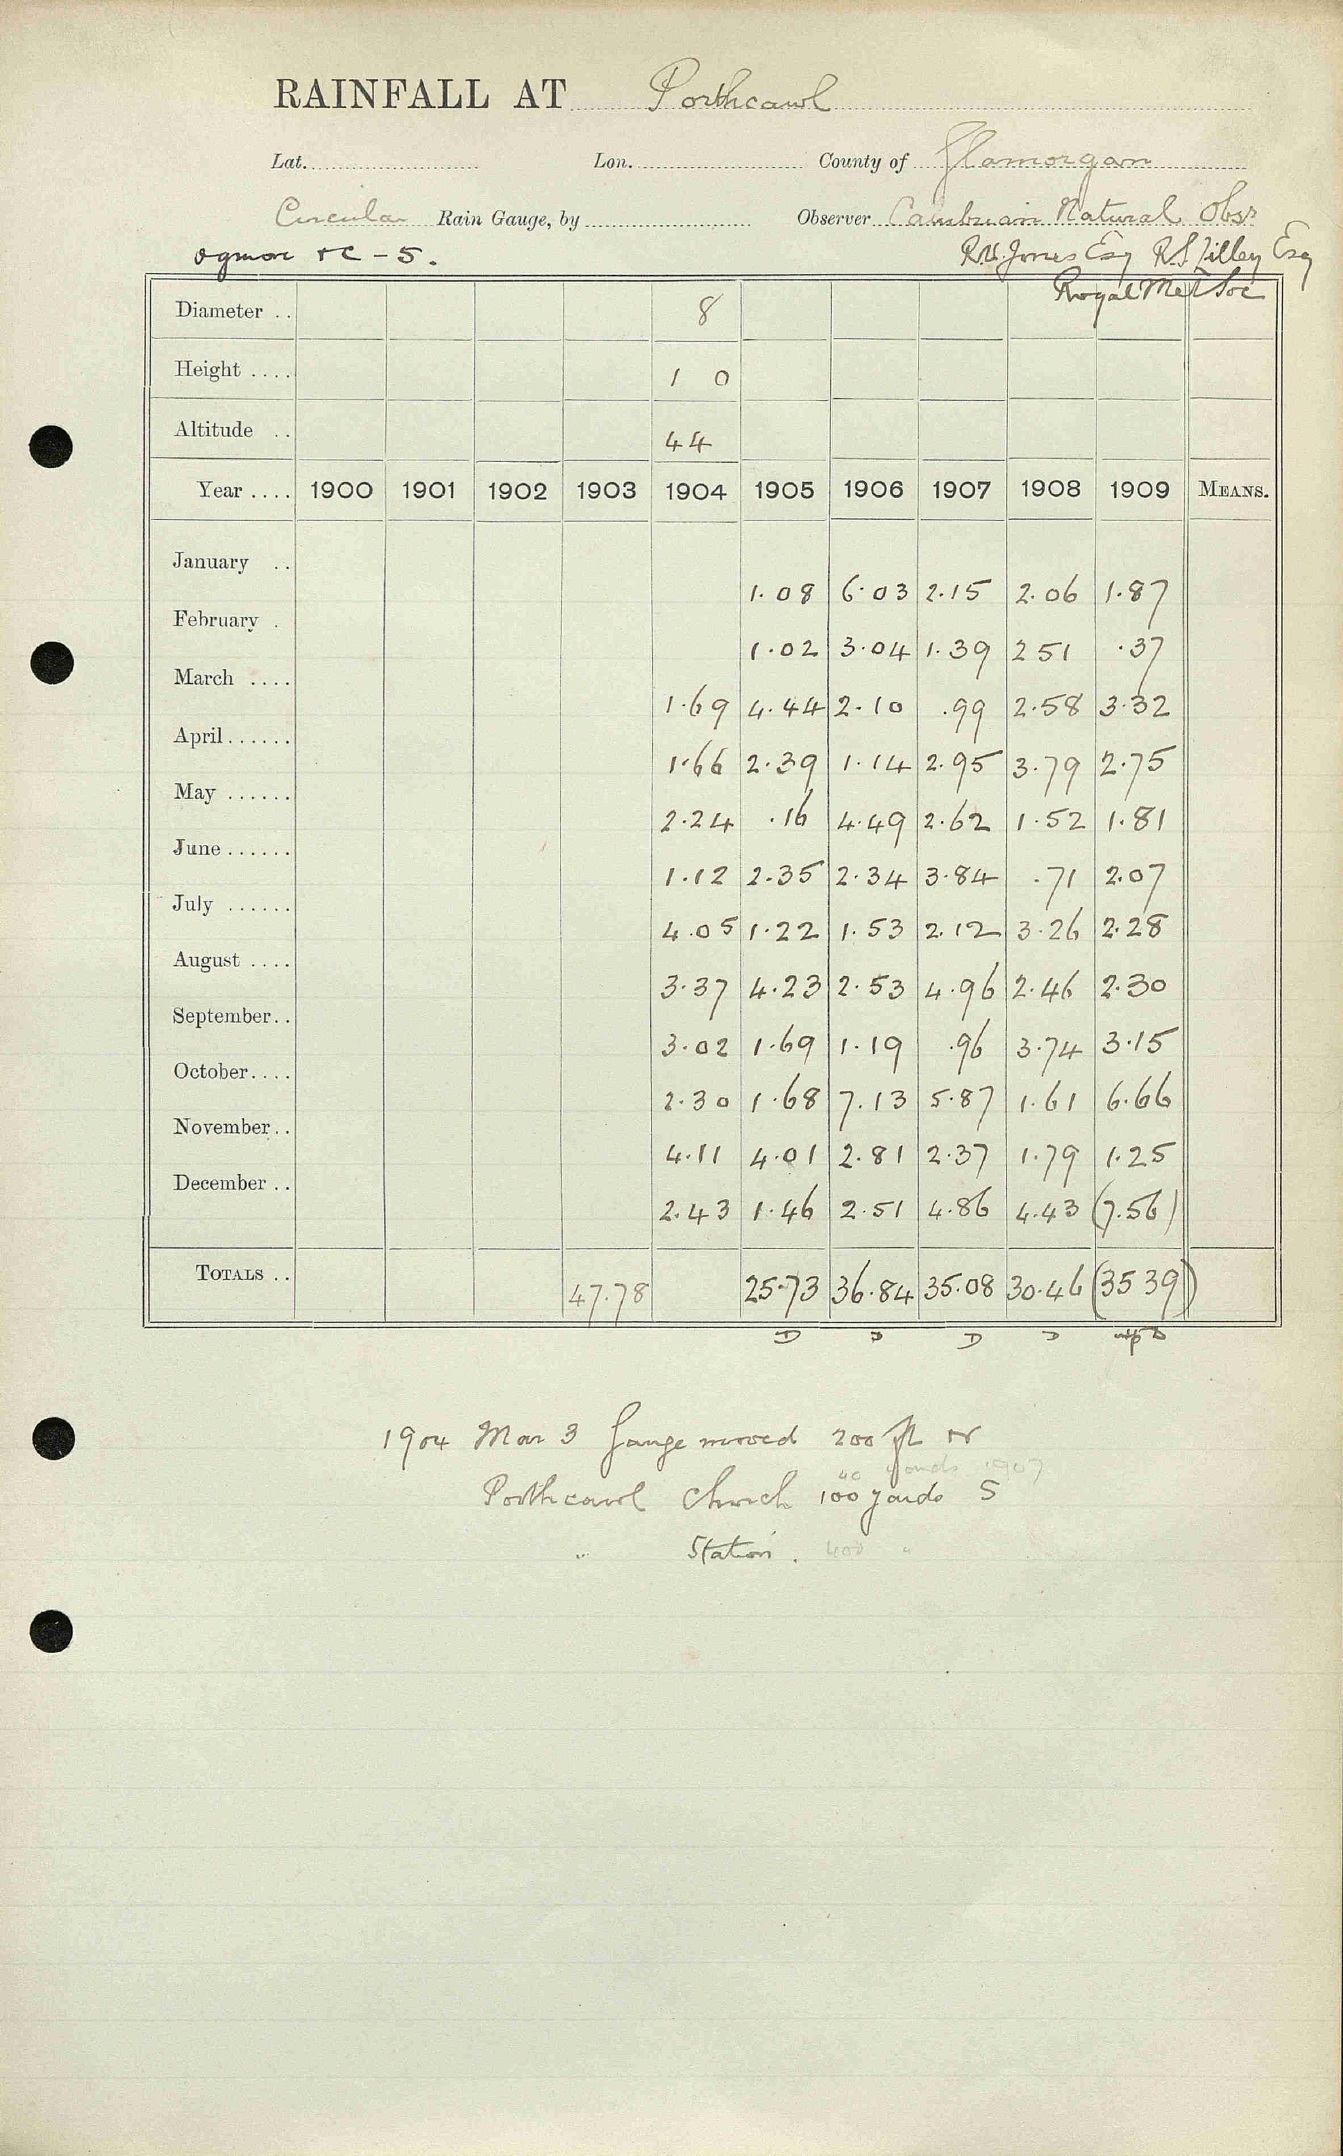 RAINFALL AT Porthcawl
Lat. Lon. County of Glamorgan
Circular Rain Gauge, by Observer Cambrian Natural Obsr
Ogmore &c - 5. R.H. Jones Esq R.S. Tilley Esq
Royal Met Soc
Diameter .. 8
Height .... 1 0
Altitude .. 44
Year .... 1900 1901 1902 1903 1904 1905 1906 1907 1908 1909 MEANS.
January .. 1.08 6.03 2.15 2.06 1.87
February . 1.02 3.04 1.39 2 51 .37
March .... 1.69 4.44 2.10 .99 2.58 3.32
April...... 1.66 2.39 1.14 2.95 3.79 2.75
May ...... 2.24 .16 4.49 2.62 1.52 1.81
June...... 1.12 2.35 2.34 3.84 .71 2.07
July ...... 4.05 1.22 1.53 2.12 3.26 2.28
August .... 3.37 4.23 2.53 4.96 2.46 2.30
September.. 3.02 1.69 1.19 .96 3.74 3.15
October.... 2.30 1.68 7.13 5.87 1.61 6.66
November.. 4.11 4.01 2.81 2.37 1.79 1.25
December .. 2.43 1.46 2.51 4.86 4.43 (7.56)
TOTALS .. 47.78 25.73 36.84 35.08 30.46 (35 39)
D D D D D
1904 Mar 3 Gauge moved 200 ft
40 yards 1907
Porthcawl Church 100 yards S
" Station . 400 "